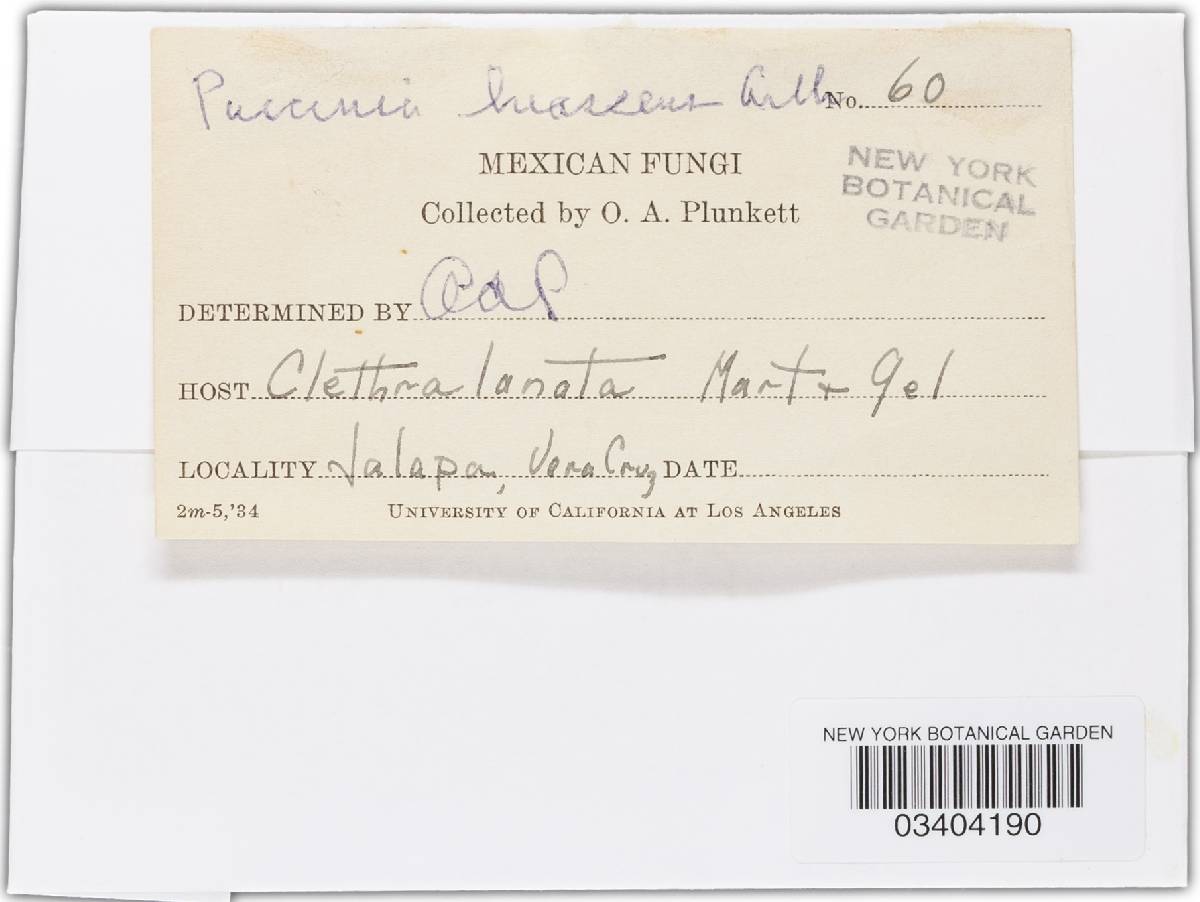 Puccinia Arth No. 60
MEXICAN FUNGI
Collected by O. A. Plunkett
NEW YORK
BOTANICAL
GARDEN
DETERMINED BY OAP
HOST Clethra lanata Mart & Gel
LOCALITY Jalapa, Vera Cruz DATE
2m-5,'34 UNIVERSITY OF CALIFORNIA AT LOS ANGELES
NEW YORK BOTANICAL GARDEN
03404190